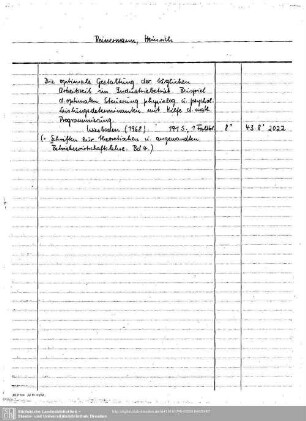 Reinermann, Heinrich
Die optimale Gestaltung der täglichen
Arbeitszeit im Industriebetrieb. Beispiel
d. optimalen Steuerung physiolog. u. psychol.
Leistungsdeterminanten mit Hilfe d. math.
Programmierung.
Wiesbaden (1968). 191 S. 8° 43. 8° 2022
(= Schriften zur theoretischen u. angewandten
Betriebswirtschaftslehre. Bd 4.)
Sächsische Landesbibliothek –
Staats- und Universitätsbibliothek Dresden